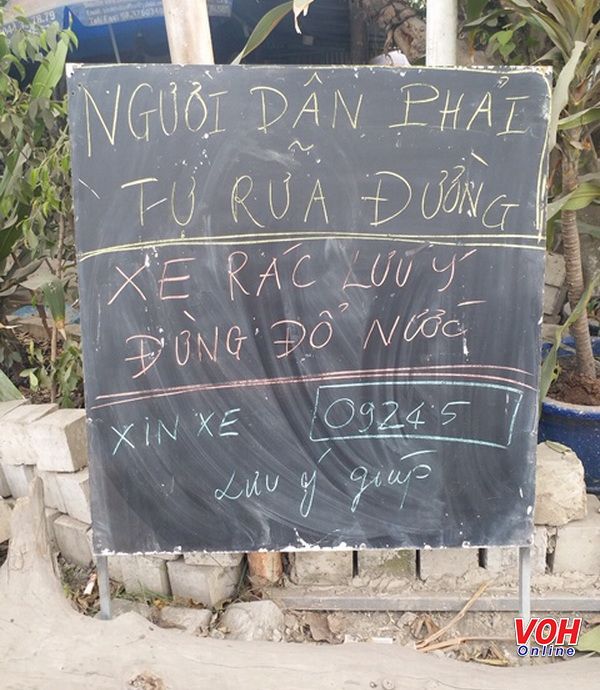 NGƯỜI DÂN PHẢI
TỰ RỮA ĐƯỜNG
XE RÁC LƯU Ý
ĐỪNG ĐỔ NƯỚC
XIN XE 09245
Lưu ý giúp
VOH
Online